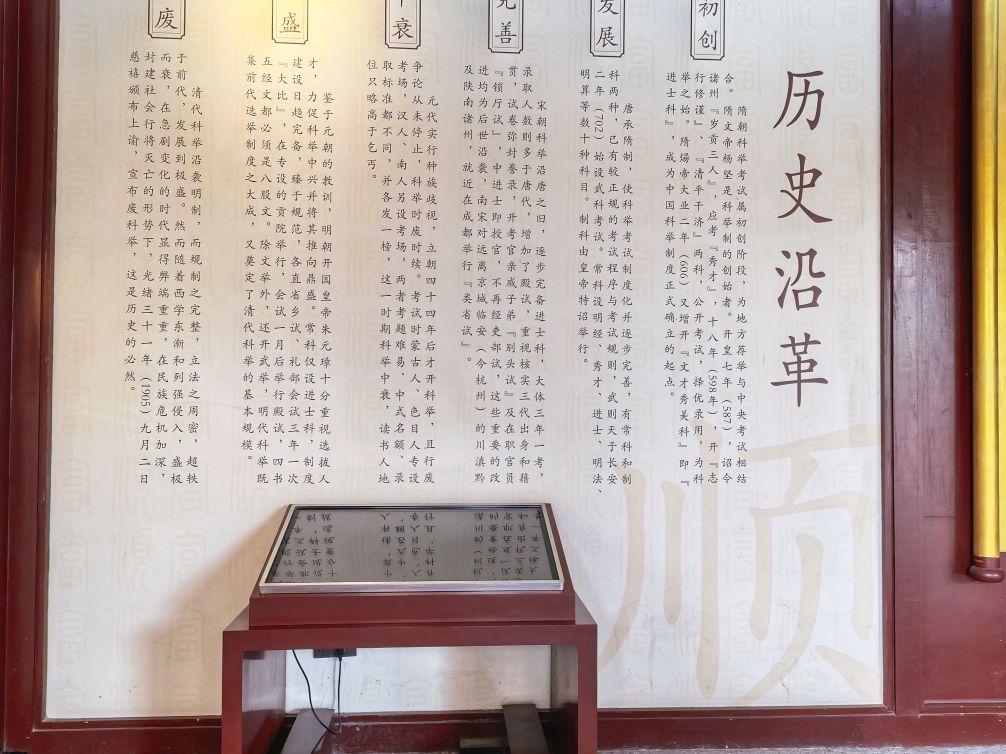 历史沿革
初创
隋朝科举考试属初创阶段，为地方荐举与中央考试相结
合。隋文帝杨坚是科举制的创始者。开皇七年（587），诏令
诸州『岁贡三人』，应考『秀才』，十八年（598年），开『志
行修谨』、『清平干济』两科，公开考试，择优录用，为科
举之始。隋炀帝大业二年（606）又增开『文才秀美科』即『
进士科』，成为中国科举制度正式确立的起点。
发展
唐承隋制，使科举考试制度化并逐步完善，有常科和制
科两种，已有较正规的考试程序与考试规则，武则天于长安
二年（702）始设武科考试。常科设明经、秀才、进士，明法、
明算等数十种科目。制科由皇帝特诏举行。
完善
宋朝科举沿唐之旧，逐步完备进士科，大体三年一考，
录取人数则多于唐代，增加了殿试，重视核实三代出身和籍
贯，试卷弥封誊录，开考官亲戚子弟『别头试』及在职官员
『锁厅试』，中进士即授官，不再经吏部试，这些重要的改
进均为后世沿袭，南宋对远离京城临安（今杭州）的川滇黔
及陕南诸州，就近在成都举行『类省试』。
中衰
元代实行种族歧视，立朝四十四年后才开科举，且行废
争论从未停止，科举时废时续。考试时蒙古人、色目人专设
考场，汉人、南人另设考场，两者考题难易、中式名额、录
取标准都不同，并各发一榜，这一时期科举中衰，读书人地
位只略高于乞丐。
盛
鉴于元朝的教训，明朝开国皇帝朱元璋十分重视选拔人
才，力促科举中兴并将其推向鼎盛。常科仅设进士科，制度
建设日趋完备，臻于规范，各直省乡试、礼部会试三年一次
『大比』，在专设的贡院举行，会试一月后举行殿试，四书
五经文都必须是八股文。除文举外，还开武举，明代科举既
集前代选举制度之大成，又奠定了清代科举的基本规模。
废
清代科举沿袭明制，而规制之完整，立法之周密，超轶
于前代，发展到极盛。然而随着西学东渐和列强侵入，盛极
而衰，在急剧变化的时代显得弊端重重，在民族危机加深，
封建社会行将灭亡的形势下，光绪三十一年（1905）九月二日
慈禧颁布上谕，宣布废科举，这是历史的必然。
顺